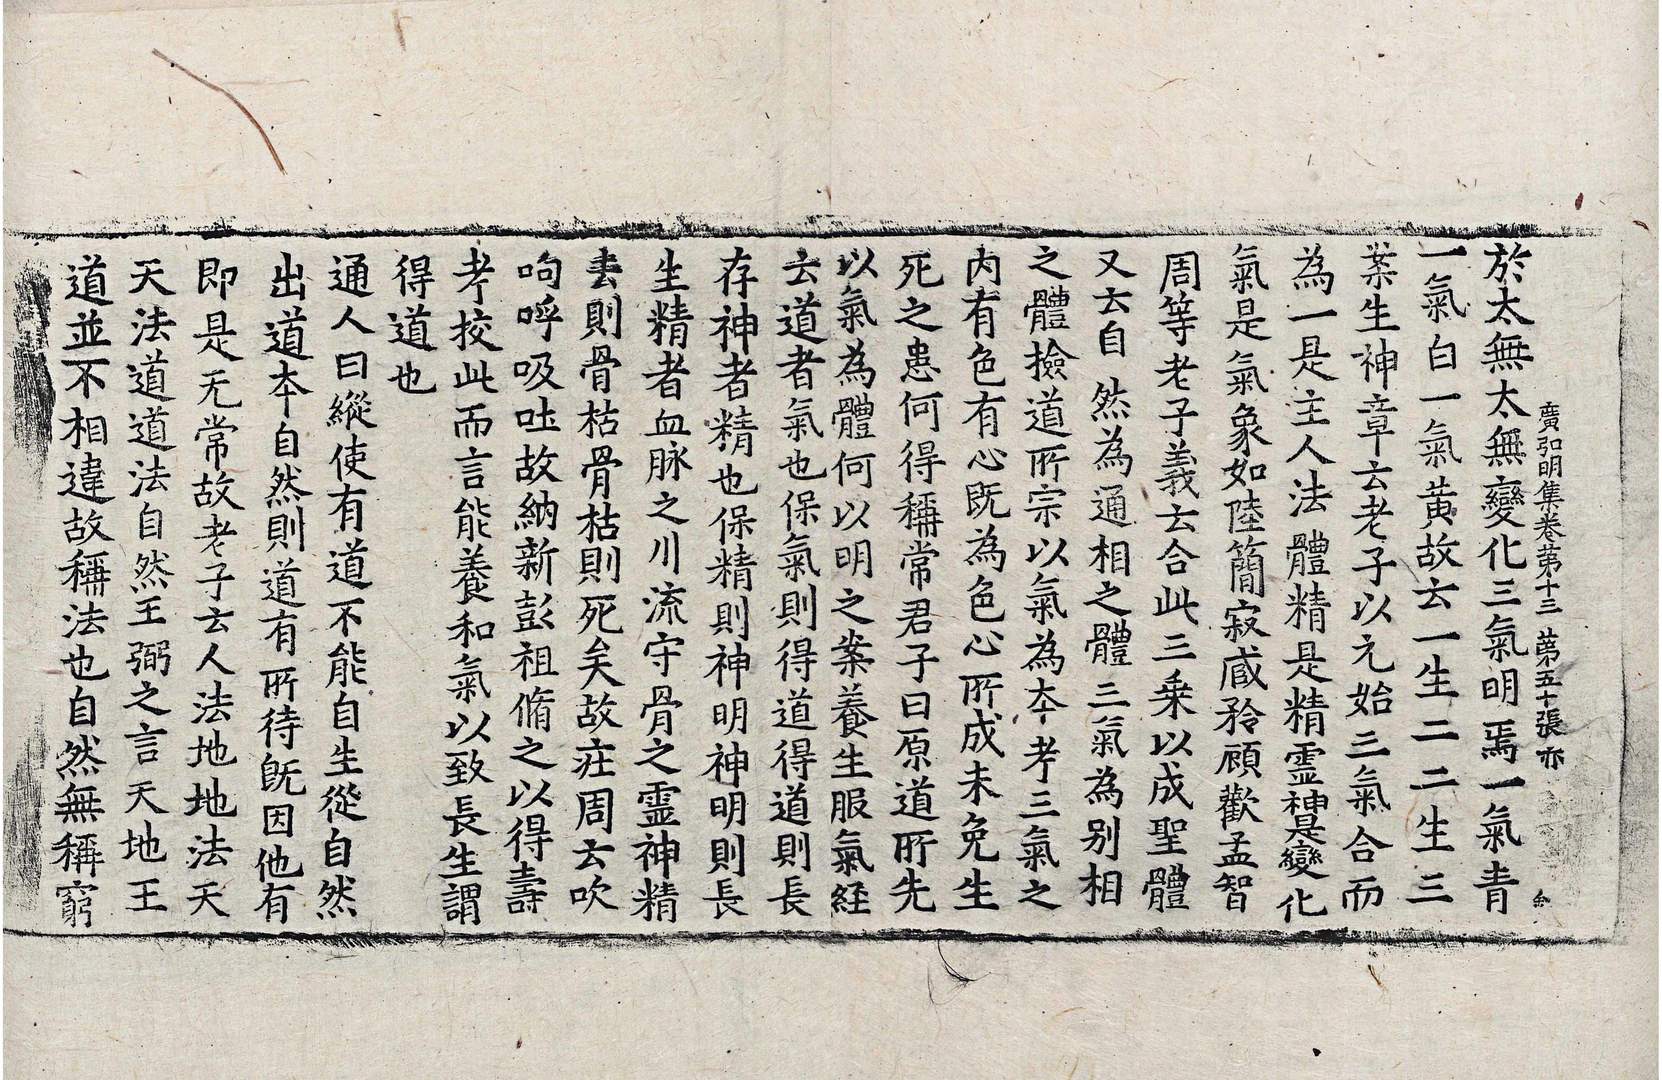 廣弘明集卷苐十三 苐五十張 亦
於太無太無變化三氣明焉一氣青
一氣白一氣黃故云一生二二生三
案生神章云老子以元始三氣合而
為一是主人法體精是精靈神是變化
氣是氣象如陸簡寂臧矜頋歡孟智
周等老子義云合此三乘以成聖體
又云自然為通相之體三氣為別相
之體撿道所宗以氣為本考三氣之
內有色有心既為色心所成未免生
死之患何得稱常君子曰原道所先
以氣為體何以明之案養生服氣経
云道者氣也保氣則得道得道則長
存神者精也保精則神明神明則長
生精者血脉之川流守骨之靈神精
去則骨枯骨枯則死矣故莊周云吹
呴呼吸吐故納新彭祖脩之以得壽
考挍此而言能養和氣以致長生謂
得道也
通人曰縱使有道不能自生從自然
出道本自然則道有所待既因他有
即是无常故老子云人法地地法天
天法道道法自然王弼之言天地王
道並不相違故稱法也自然無稱窮